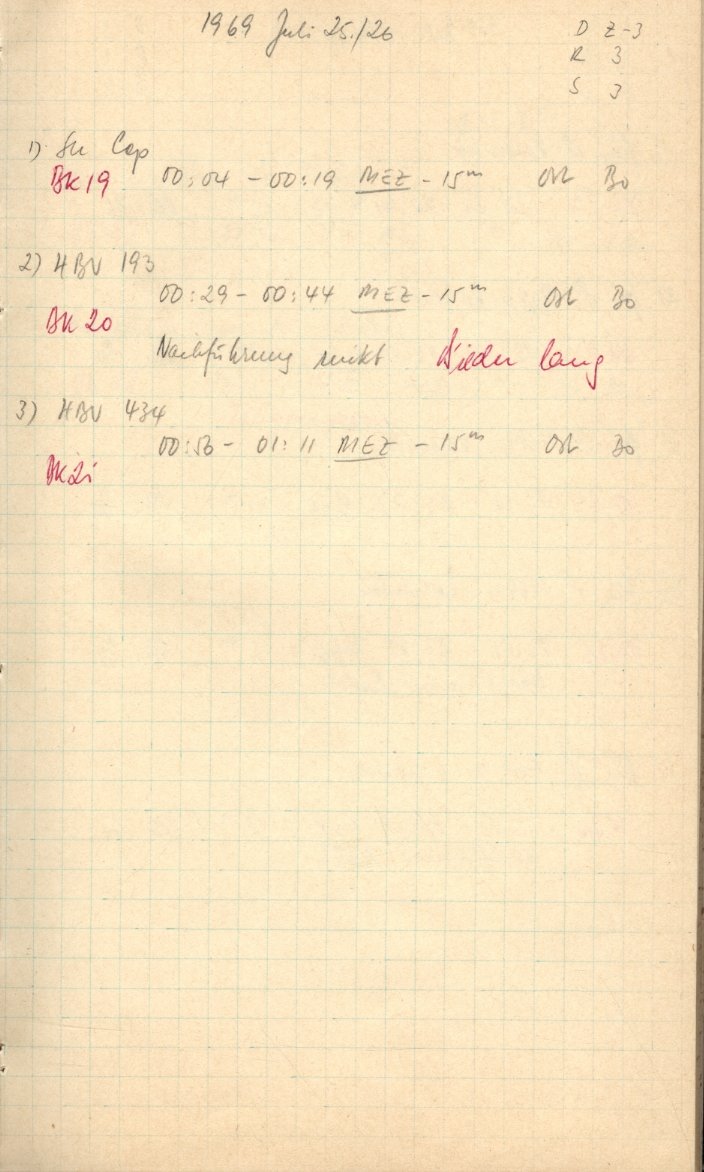 1969 Juli 25./26
D Z-3
R 3
S 3
1) Cap
BK 19 00:04 - 00:19 MEZ - 15m Ost Bo
2) HBV 193
00:29 - 00:44 MEZ - 15m Ost Bo
BK 20
Nachführung
3) HBV 434
00:56 - 01:11 MEZ - 15m Ost Bo
BK 21